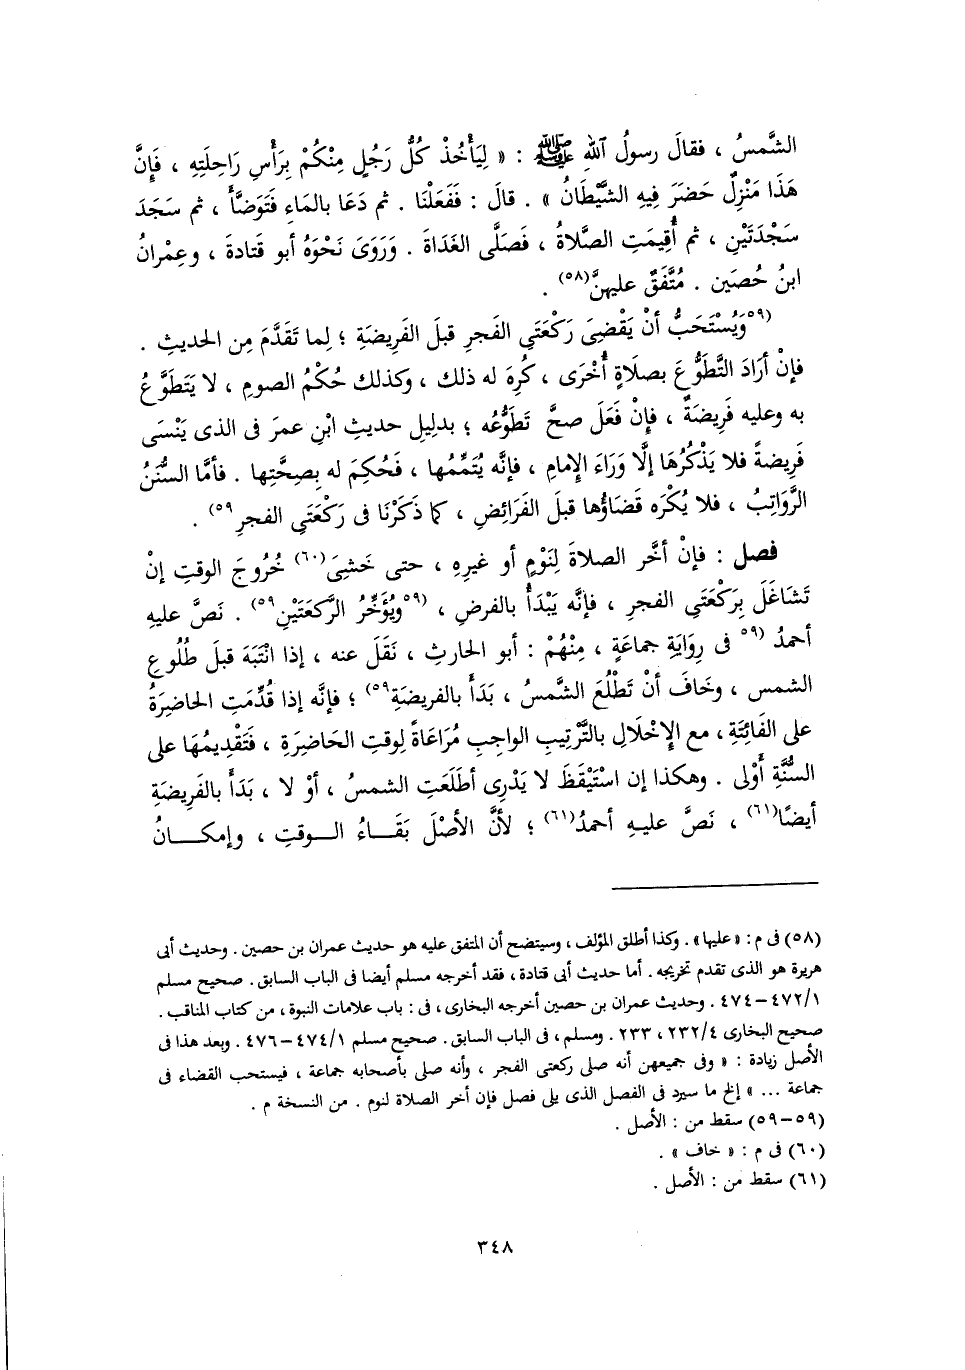 الشَّمسُ ، فقالَ رسولُ اللهِ ﷺ : « لِيَأْخُذْ كُلُّ رَجُلٍ مِنْكُمْ بِرَأْسِ رَاحِلَتِهِ ، فَإِنَّ
هَذَا مَنْزِلٌ حَضَرَ فِيهِ الشَّيْطَانُ » . قالَ : فَفَعَلْنَا . ثم دَعَا بالمَاءِ فَتَوَضَّأَ ، ثم سَجَدَ
سَجْدَتَيْنِ ، ثم أُقِيمَتِ الصَّلاةُ ، فَصَلَّى الغَدَاةَ . وَرَوَى نَحْوَهُ أبو قَتادةَ ، وعِمْرانُ
ابنُ حُصَين . مُتَّفَقٌ عليهنَّ(٥٨) .
(٥٩وَيُسْتَحَبُّ أنْ يَقْضِىَ رَكْعَتَىِ الفَجرِ قبلَ الفَرِيضَةِ ؛ لِما تَقَدَّمَ مِن الحديثِ .
فإنْ أرَادَ التَّطَوُّعَ بصلاةٍ أُخْرَى ، كُرِهَ له ذلك ، وكذلك حُكْمُ الصومِ ، لا يَتَطَوَّعُ
به وعليه فَرِيضَةٌ ، فإنْ فَعَلَ صحَّ تَطَوُّعُه ؛ بدلِيلِ حديثِ ابْنِ عمرَ فى الذى يَنْسَى
فَرِيضةً فلا يَذْكُرُهَا إلَّا وَرَاءَ الإِمامِ ، فإنَّه يُتَمِّمُها ، فَحُكِمَ له بِصِحَّتِها . فأمَّا السُّنَنُ
الرَّوَاتِبُ ، فلا يُكْرَه قَضَاؤُها قبلَ الفَرَائضِ ، كما ذَكَرْنَا فى رَكْعَتَىِ الفجرِ٥٩) .
فصل : فإنْ أخَّر الصلاةَ لِنَوْمٍ أو غيرِهِ ، حتى خَشِىَ(٦٠) خُرُوجَ الوقتِ إنْ
تَشَاغَلَ بِرَكْعَتَىِ الفجرِ ، فإنَّه يَبْدَأُ بالفرضِ ، (٥٩ويُؤَخِّرُ الرَّكعَتَيْنِ٥٩) . نَصَّ عليهِ
أحمدُ (٥٩ فى رِوَايَةِ جماعَةٍ ، مِنْهُمْ : أبو الحارثِ ، نَقَلَ عنه ، إذا انْتَبَهَ قبلَ طُلُوعِ
الشمس ، وخَافَ أنْ تَطْلُعَ الشَّمسُ ، بَدَأَ بالفريضَةِ٥٩) ؛ فإنَّه إذا قُدِّمَتِ الحاضِرَةُ
على الفَائِتَةِ ، مع الإِخْلَالِ بالتَّرْتِيبِ الواجِبِ مُرَاعَاةً لِوقتِ الحَاضِرَةِ ، فَتَقْدِيمُهَا على
السُّنَّةِ أَوْلى . وهكذا إن اسْتَيْقَظَ لا يَدْرِى أطَلَعَتِ الشمسُ ، أوْ لا ، بَدَأَ بالفَرِيضَةِ
أيضًا(٦١) ، نَصَّ عليهِ أحمدُ(٦١) ؛ لأنَّ الأصْلَ بَقَاءُ الوقتِ ، وإمكانُ
(٥٨) فى م : «عليها» . وكذا أطلق المؤلف ، وسيتضح أن المتفق عليه هو حديث عمران بن حصين . وحديث أبى
هريرة هو الذى تقدم تخريجه . أما حديث أبى قتادة ، فقد أخرجه مسلم أيضا فى الباب السابق . صحيح مسلم
١/ ٤٧٢–٤٧٤ . وحديث عمران بن حصين أخرجه البخارى ، فى : باب علامات النبوة ، من كتاب المناقب .
صحيح البخارى ٤/ ٢٣٢ ، ٢٣٣ . ومسلم ، فى الباب السابق . صحيح مسلم ١/ ٤٧٤–٤٧٦ . وبعد هذا فى
الأصل زيادة : « وفى جميعهن أنه صلى ركعتى الفجر ، وأنه صلى بأصحابه جماعة ، فيستحب القضاء فى
جماعة ... » إلخ ما سيرد فى الفصل الذى يلى فصل فإن أخر الصلاة لنوم . من النسخة م .
(٥٩–٥٩) سقط من : الأصل .
(٦٠) فى م : « خاف » .
(٦١) سقط من : الأصل .
٣٤٨